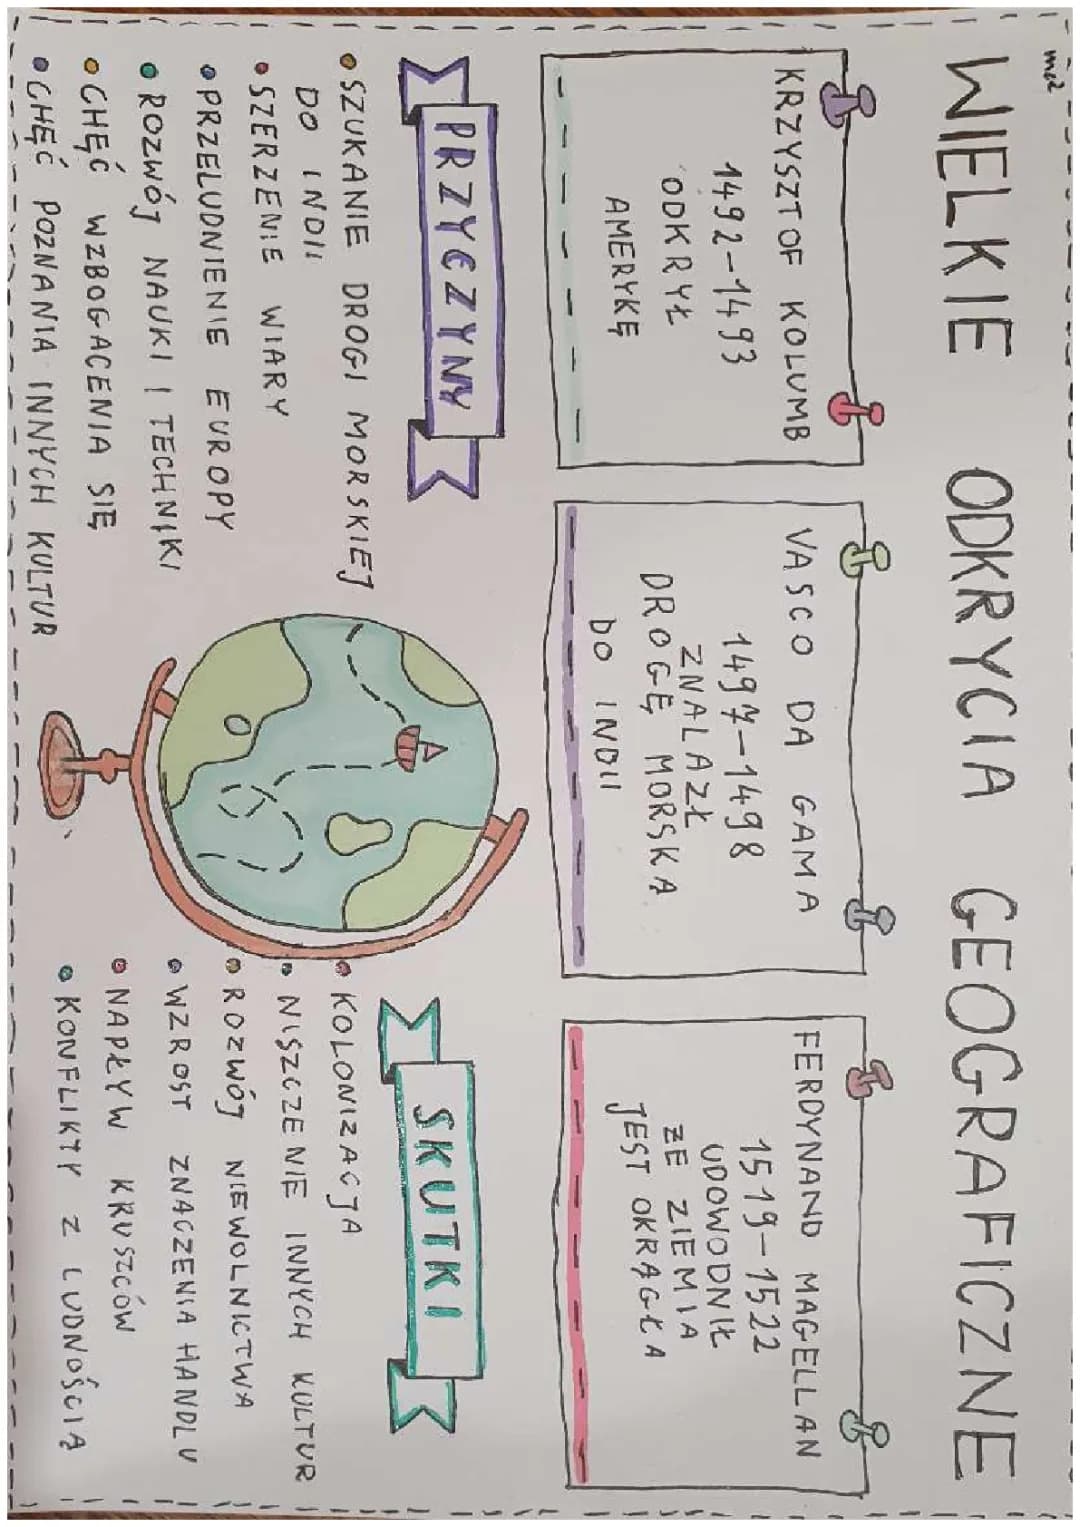 WIELKIE ODKRYCIA GEOGRAFICZNE
KRZYSZTOF KOLUMB
1492-1493
ODKRYŁ
AMERYKĘ
VASCO DA GAMA
1497-1498
ZNALAZŁ
DROGĘ MORSKĄ
DO INDII
FERDYNAND MAGELLAN
1519-1522
UDOWODNIŁ
ŻE ZIEMIA
JEST OKRĄGŁA
PRZYCZYNY
• SZUKANIE DROGI MORSKIEJ
DO INDII
• SZERZENIE WIARY
• PRZELUDNIENIE EUROPY
• ROZWÓJ NAUKI I TECHNIKI
• CHĘĆ WZBOGACENIA SIĘ
• CHĘĆ POZNANIA INNYCH KULTUR
SKUTKI
• KOLONIZACJA
• NISZCZENIE INNYCH KULTUR
• ROZWÓJ NIEWOLNICTWA
• WZROST ZNACZENIA HANDLU
• NAPŁYW KRUSZCÓW
• KONFLIKTY Z LUDNOŚCIĄ